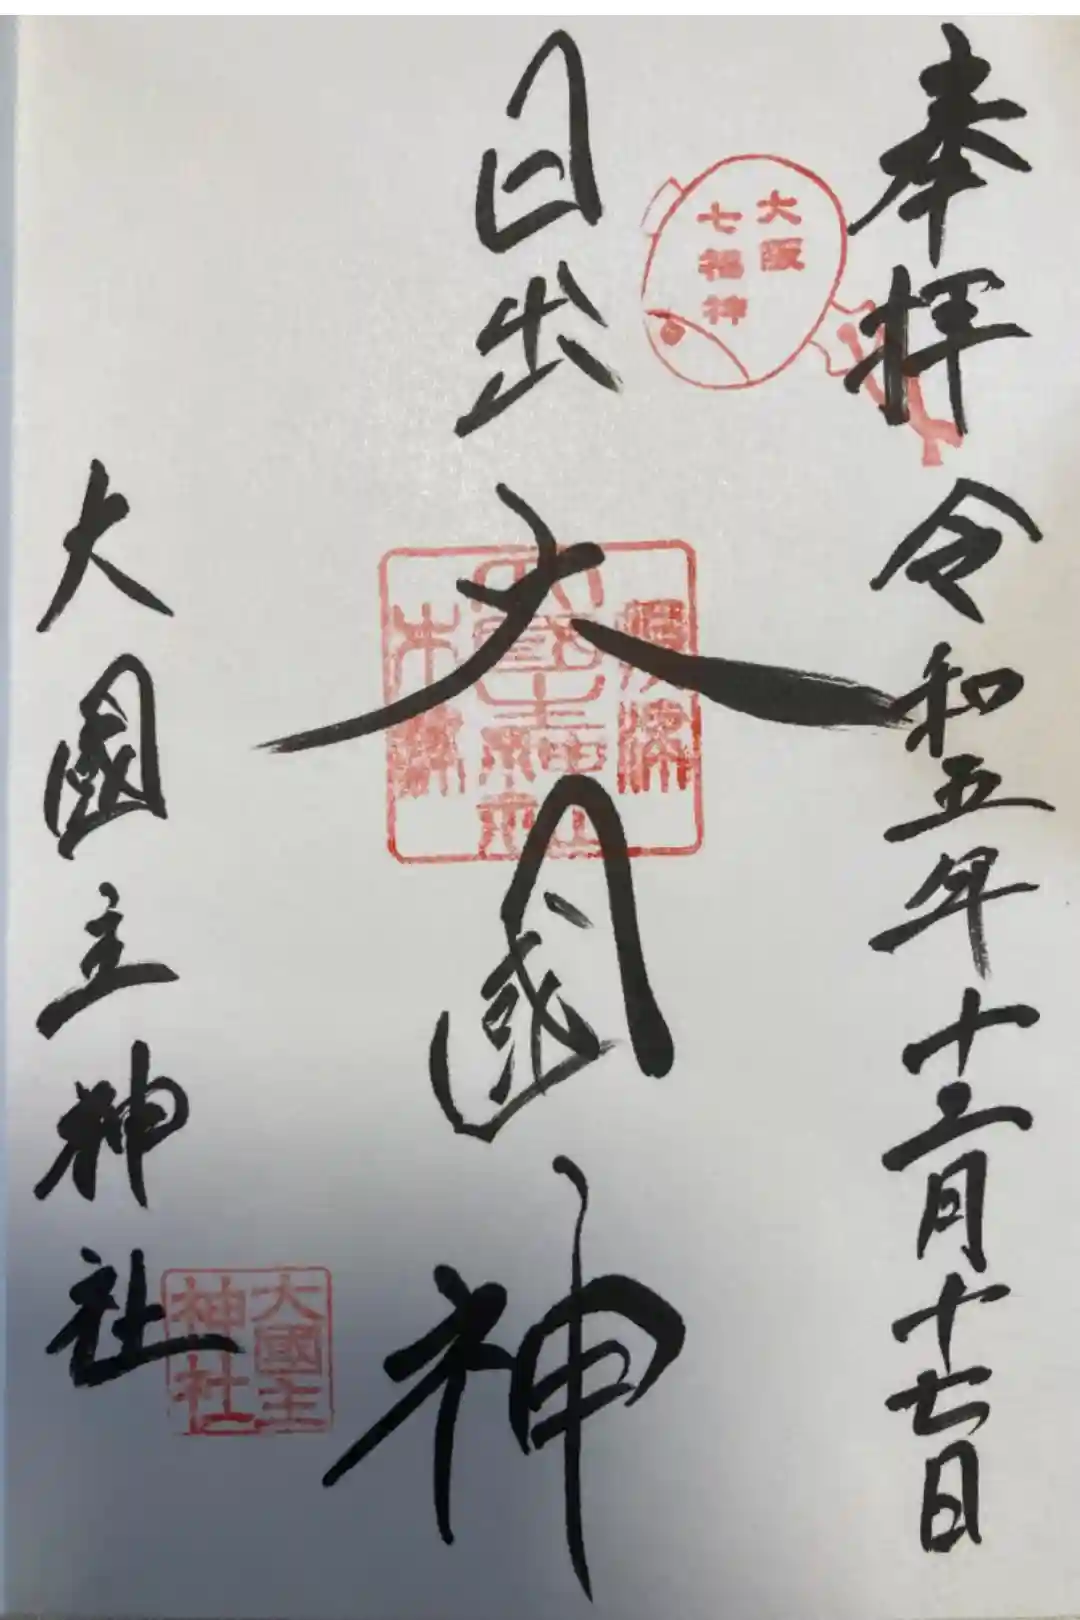 奉拝
令和五年十二月十七日
大阪
七福神
日出大國神
大國主神社
大國主
神社